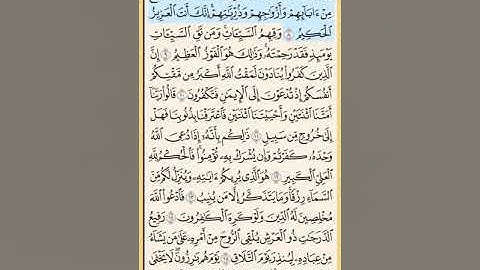 مِنْ ءَابَآئِهِمْ وَأَزْوَٰجِهِمْ وَذُرِّيَّـٰتِهِمْ إِنَّكَ أَنتَ ٱلْعَزِيزُ
ٱلْحَكِيمُ ٨ وَقِهِمُ ٱلسَّيِّـَٔاتِ وَمَن تَقِ ٱلسَّيِّـَٔاتِ
يَوْمَئِذٍ فَقَدْ رَحِمْتَهُۥ وَذَٰلِكَ هُوَ ٱلْفَوْزُ ٱلْعَظِيمُ ٩ إِنَّ
ٱلَّذِينَ كَفَرُوا۟ يُنَادَوْنَ لَمَقْتُ ٱللَّهِ أَكْبَرُ مِن مَّقْتِكُمْ
أَنفُسَكُمْ إِذْ تُدْعَوْنَ إِلَى ٱلْإِيمَـٰنِ فَتَكْفُرُونَ ١٠ قَالُوا۟ رَبَّنَآ
أَمَتَّنَا ٱثْنَتَيْنِ وَأَحْيَيْتَنَا ٱثْنَتَيْنِ فَٱعْتَرَفْنَا بِذُنُوبِنَا فَهَلْ
إِلَىٰ خُرُوجٍ مِّن سَبِيلٍ ١١ ذَٰلِكُم بِأَنَّهُۥٓ إِذَا دُعِىَ ٱللَّهُ
وَحْدَهُۥ كَفَرْتُمْ وَإِن يُشْرَكْ بِهِۦ تُؤْمِنُوا۟ فَٱلْحُكْمُ لِلَّهِ
ٱلْعَلِىِّ ٱلْكَبِيرِ ١٢ هُوَ ٱلَّذِى يُرِيكُمْ ءَايَـٰتِهِۦ وَيُنَزِّلُ لَكُم مِّنَ
ٱلسَّمَآءِ رِزْقًا وَمَا يَتَذَكَّرُ إِلَّا مَن يُنِيبُ ١٣ فَٱدْعُوا۟ ٱللَّهَ
مُخْلِصِينَ لَهُ ٱلدِّينَ وَلَوْ كَرِهَ ٱلْكَـٰفِرُونَ ١٤ رَفِيعُ
ٱلدَّرَجَـٰتِ ذُو ٱلْعَرْشِ يُلْقِى ٱلرُّوحَ مِنْ أَمْرِهِۦ عَلَىٰ مَن يَشَآءُ
مِنْ عِبَادِهِۦ لِيُنذِرَ يَوْمَ ٱلتَّلَاقِ ١٥ يَوْمَ هُم بَـٰرِزُونَ لَا يَخْفَىٰ